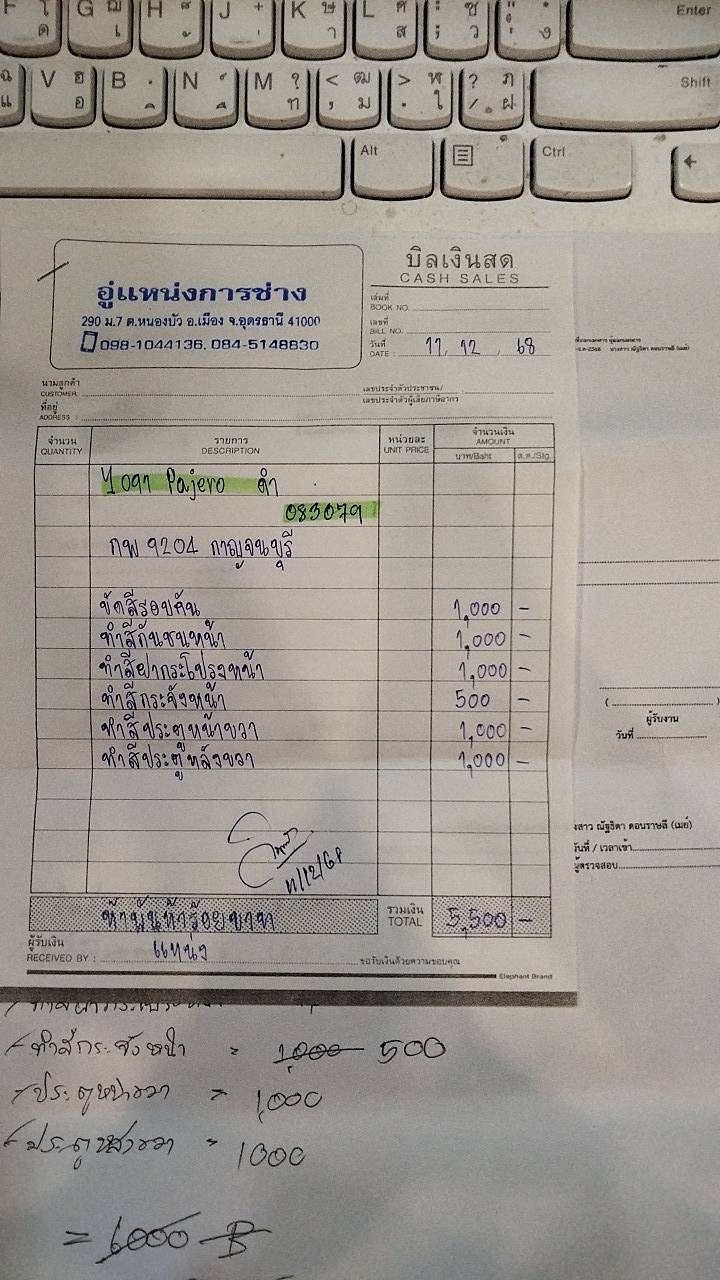 F โ ด
G ฌ เ
H ็ ้
J ๋ ่
K ษ า
L ศ ส
: ซ ; ว
" ' ง
Enter
V ฮ อ
B ฺ ิ
N ์ ื
M ? ท
< ฒ , ม
> ฬ . ใ
? ฦ / ฝ
Shift
Alt
Ctrl
บิลเงินสด
CASH SALES
อู่แหน่งการช่าง
290 ม.7 ต.หนองบัว อ.เมือง จ.อุดรธานี 41000
098-1044136, 084-5148830
เล่มที่
BOOK NO.
เลขที่
BILL NO.
วันที่
DATE : 17, 12, 68
นามลูกค้า
CUSTOMER
เลขประจำตัวประชาชน/
เลขประจำตัวผู้เสียภาษีอากร
ที่อยู่
ADDRESS :
จำนวน
QUANTITY
รายการ
DESCRIPTION
หน่วยละ
UNIT PRICE
จำนวนเงิน
AMOUNT
บาท/Baht
ส.ต./Stg.
Pajero ดำ
083079
กพ 9204 กาญจนบุรี
ขัดสีรอบคัน 1,000 -
ทำสีกันชนหน้า 1,000 -
ทำสีฝากระโปรงหน้า 1,000 -
ทำสีกระจังหน้า 500 -
ทำสีประตูหน้าขวา 1,000 -
ทำสีประตูหลังขวา 1,000 -
ห้าพันห้าร้อยบาท
รวมเงิน
TOTAL
5,500 -
ผู้รับเงิน
RECEIVED BY : แหน่ง
ขอรับเงินด้วยความขอบคุณ
Elephant Brand
ผู้รับงาน
วันที่
งสาว ณัฐธิดา ดอนราษลี (เมย์)
วันที่ / เวลาเข้า
ผู้ตรวจสอบ
ทำสีกระจังหน้า = 1,000 500
ประตูหน้าขวา = 1,000
ประตูหลังขวา = 1000
= 6000 B